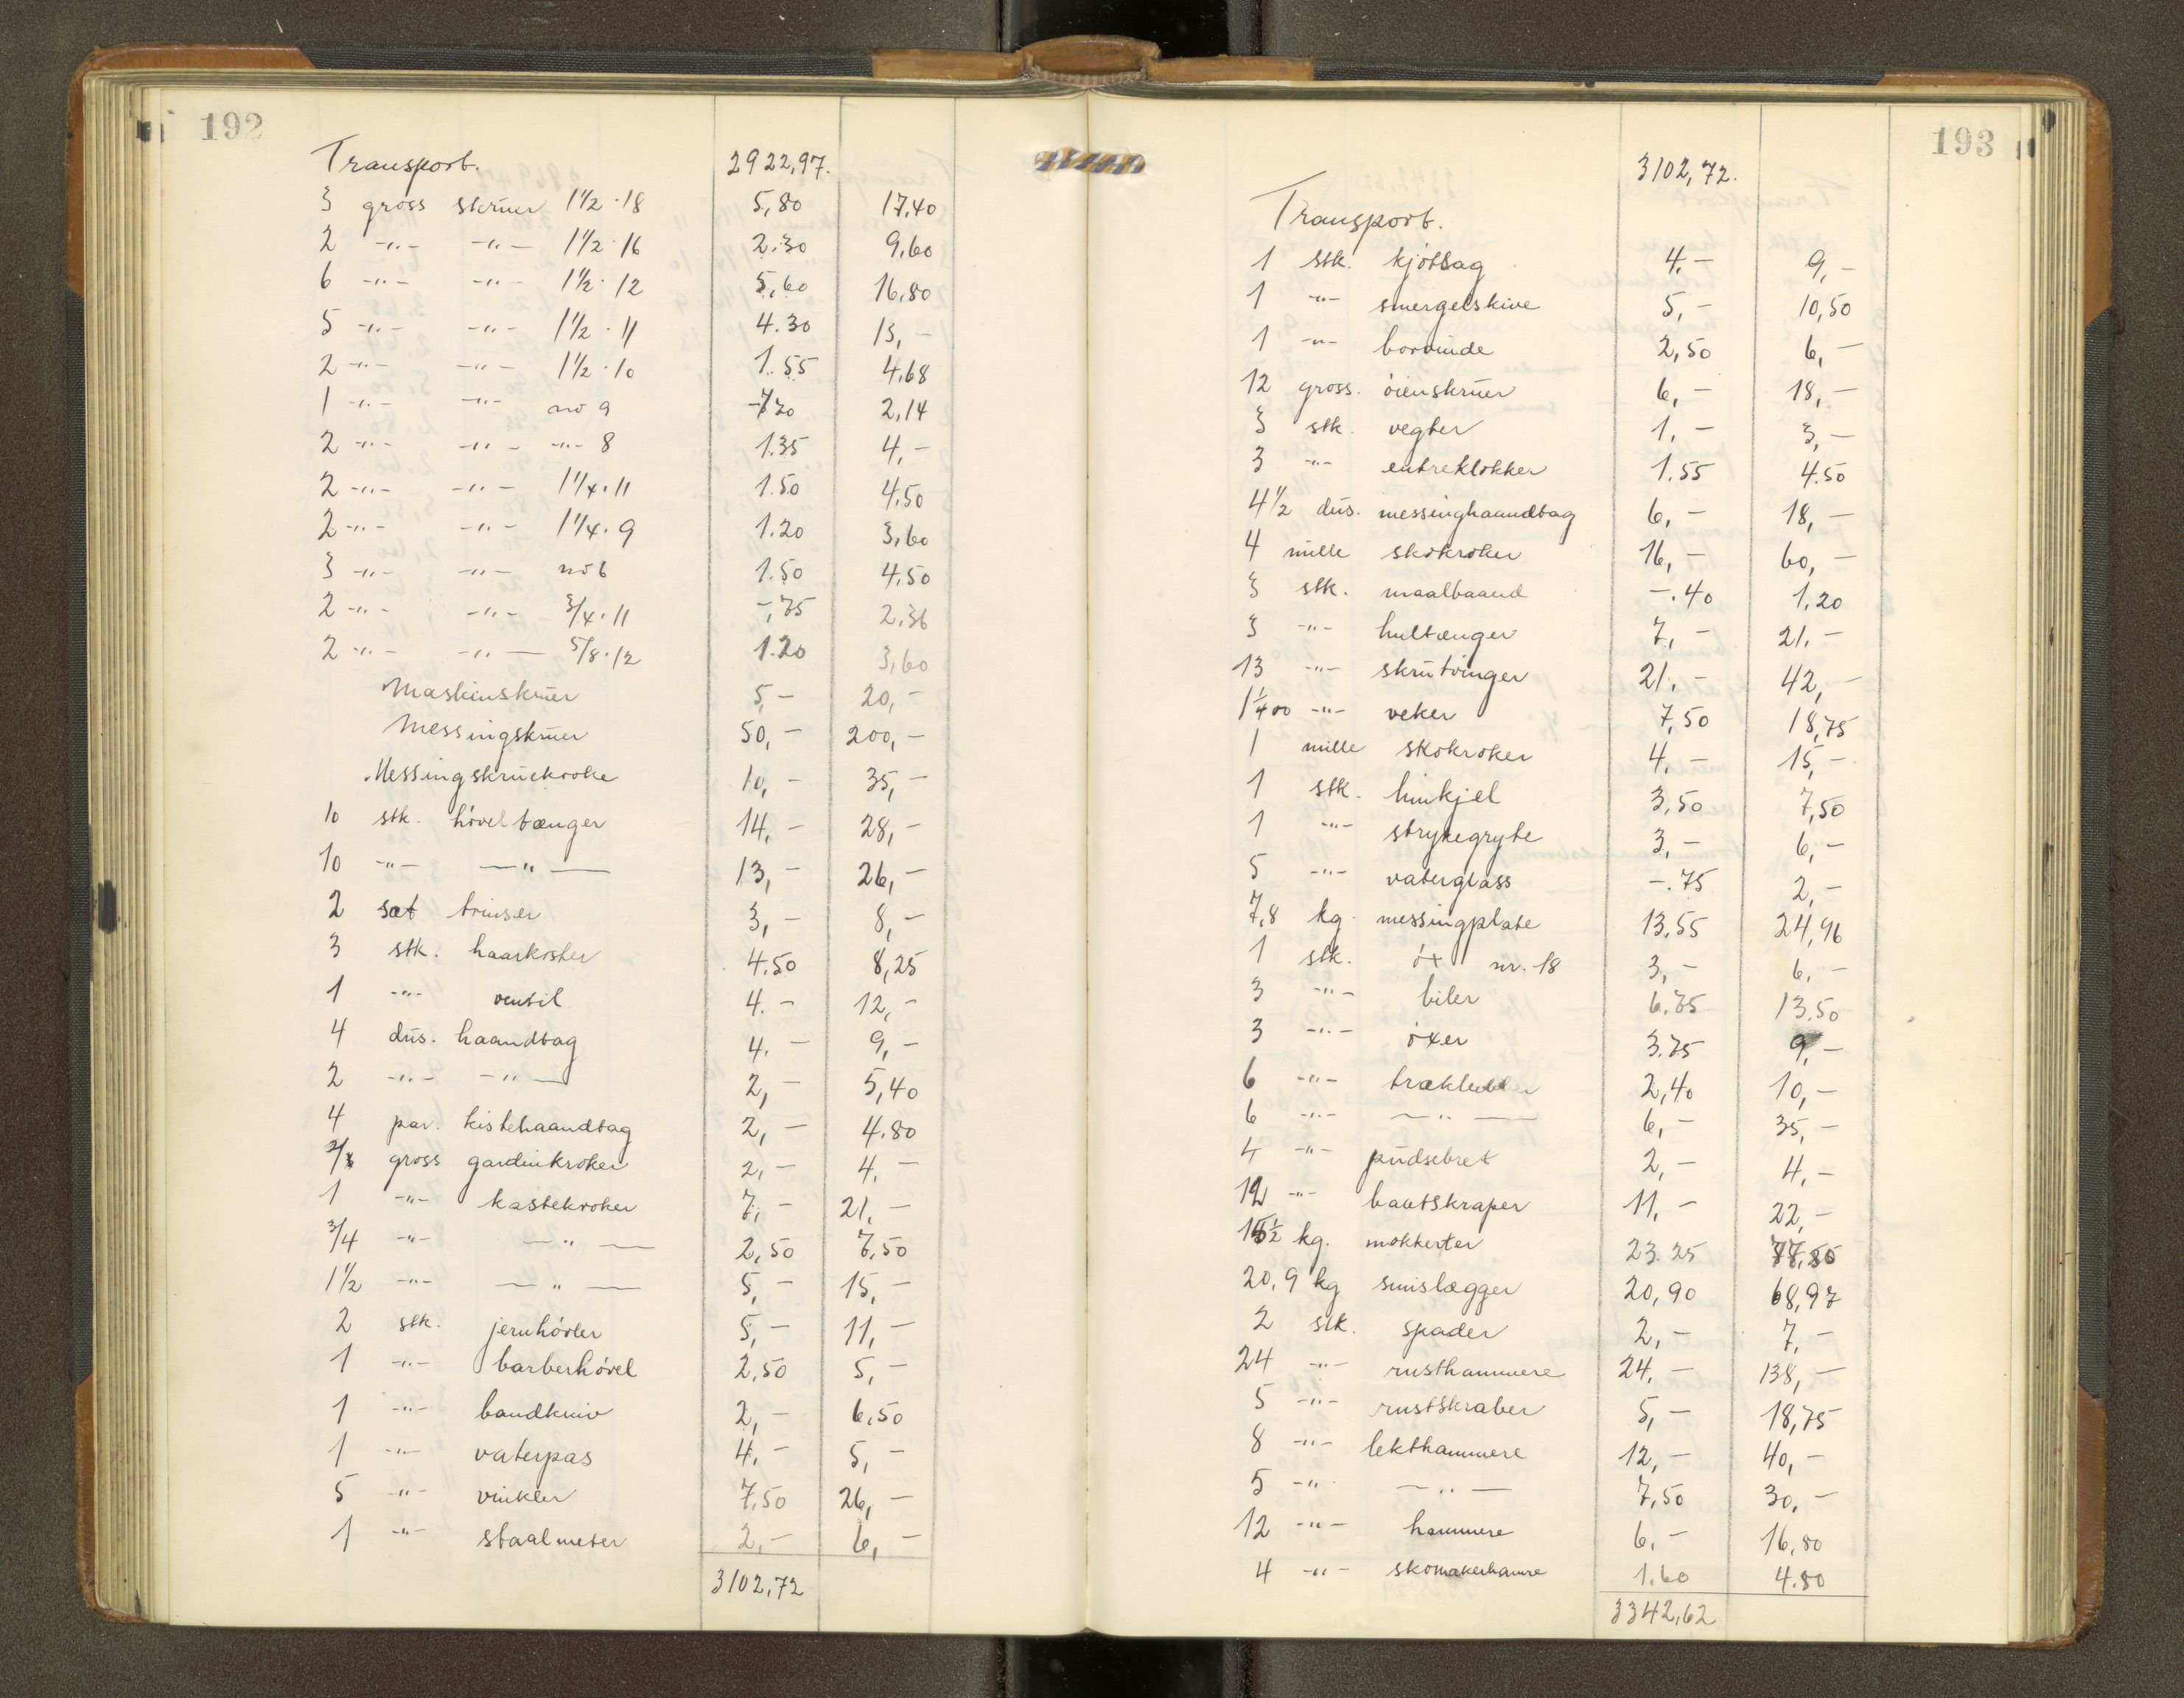 192
Transport. 2922,97.
3 gross skruer 1½·18 5,80 17,40
2 -"- -"- 1½·16 2.30 9,60
6 -"- -"- 1½·12 5,60 16,80
5 -"- -"- 1½·11 4.30 13,-
2 -"- -"- 1½·10 1.55 4,68
1 -"- -"- no 9 -,70 2,14
2 -"- -"- -"- 8 1.35 4,-
2 -"- -"- 1¼·11 1.50 4,50
2 -"- -"- 1¼·9 1.20 3,60
3 -"- -"- no 6 1.50 4,50
2 -"- -"- ¾·11 -,75 2,36
2 -"- -"- 5/8·12 1.20 3,60
Maskinskruer 5,- 20,-
Messingskruer 50,- 200,-
Messingskruekroke 10,- 35,-
10 stk. hóveltænger 14,- 28,-
10 -"- -"- 13,- 26,-
2 sæt trinser 3,- 8,-
3 stk. haarkoster 4.50 8,25
1 -"- ventil 4.- 12,-
4 dus. haandtag 4.- 9,-
2 -"- -"- 2,- 5,40
4 par. kistehaandtag 2,- 4.80
gross gardinkroker 2,- 4.-
1 -"- kastekroker 7,- 21.-
3/4 -"- -"- 2,50 7,50
1½ -"- -"- 5,- 15,-
2 stk. jernhóvler 5,- 11,-
1 -"- barberhóvel 2,50 5,-
1 -"- baudkniv 2,- 6,50
1 -"- vaterpas 4.- 5,-
5 -"- vinkler 7,50 26,-
1 -"- staalmeter 2,- 6,-
3102,72
193
3102,72.
Transport.
1 stk. kjótsag 4.- 9,-
1 -"- smergelskive 5,- 10,50
1 -"- borvinde 2,50 6,-
12 gross. óienskruer 6,- 18,-
3 stk. vegter 1,- 3,-
3 -"- entreklokker 1.55 4.50
4½ dus. messinghaandtag 6,- 18,-
4 mille skokroker 16,- 60,-
3 stk. maalbaand -.40 1,20
3 -"- hultænger 7,- 21.-
13 -"- skrutvinger 21.- 42,-
1¼00 -"- veker 7,50 18,75
1 mille skokroker 4.- 15,-
1 stk. limkjel 3,50 7,50
1 -"- strykegryte 3,- 6,-
5 -"- vaterglass -.75 2,-
7,8 kg. messingplate 13,55 24,96
1 stk. óx nr. 18 3,- 6,-
3 -"- biler 6.75 13.50
3 -"- óxer 3.75 9,-
6 -"- 2,40 10,-
6 -"- -"- 6,- 35,-
4 -"- pudsebret 2,- 4,-
12 -"- bautskraper 11,- 22,-
15½ kg. mokkerter 23.25 77,50
20,9 kg smislægger 20,90 68,97
2 stk. spader 2,- 7,-
24 -"- rusthammere 24,- 138,-
5 -"- rustskraber 5,- 18,75
8 -"- lekthammere 12,- 40,-
5 -"- -"- 7,50 30,-
12 -"- hammere 6,- 16,80
4 -"- skomakerhamre 1.60 4.80
3342,62